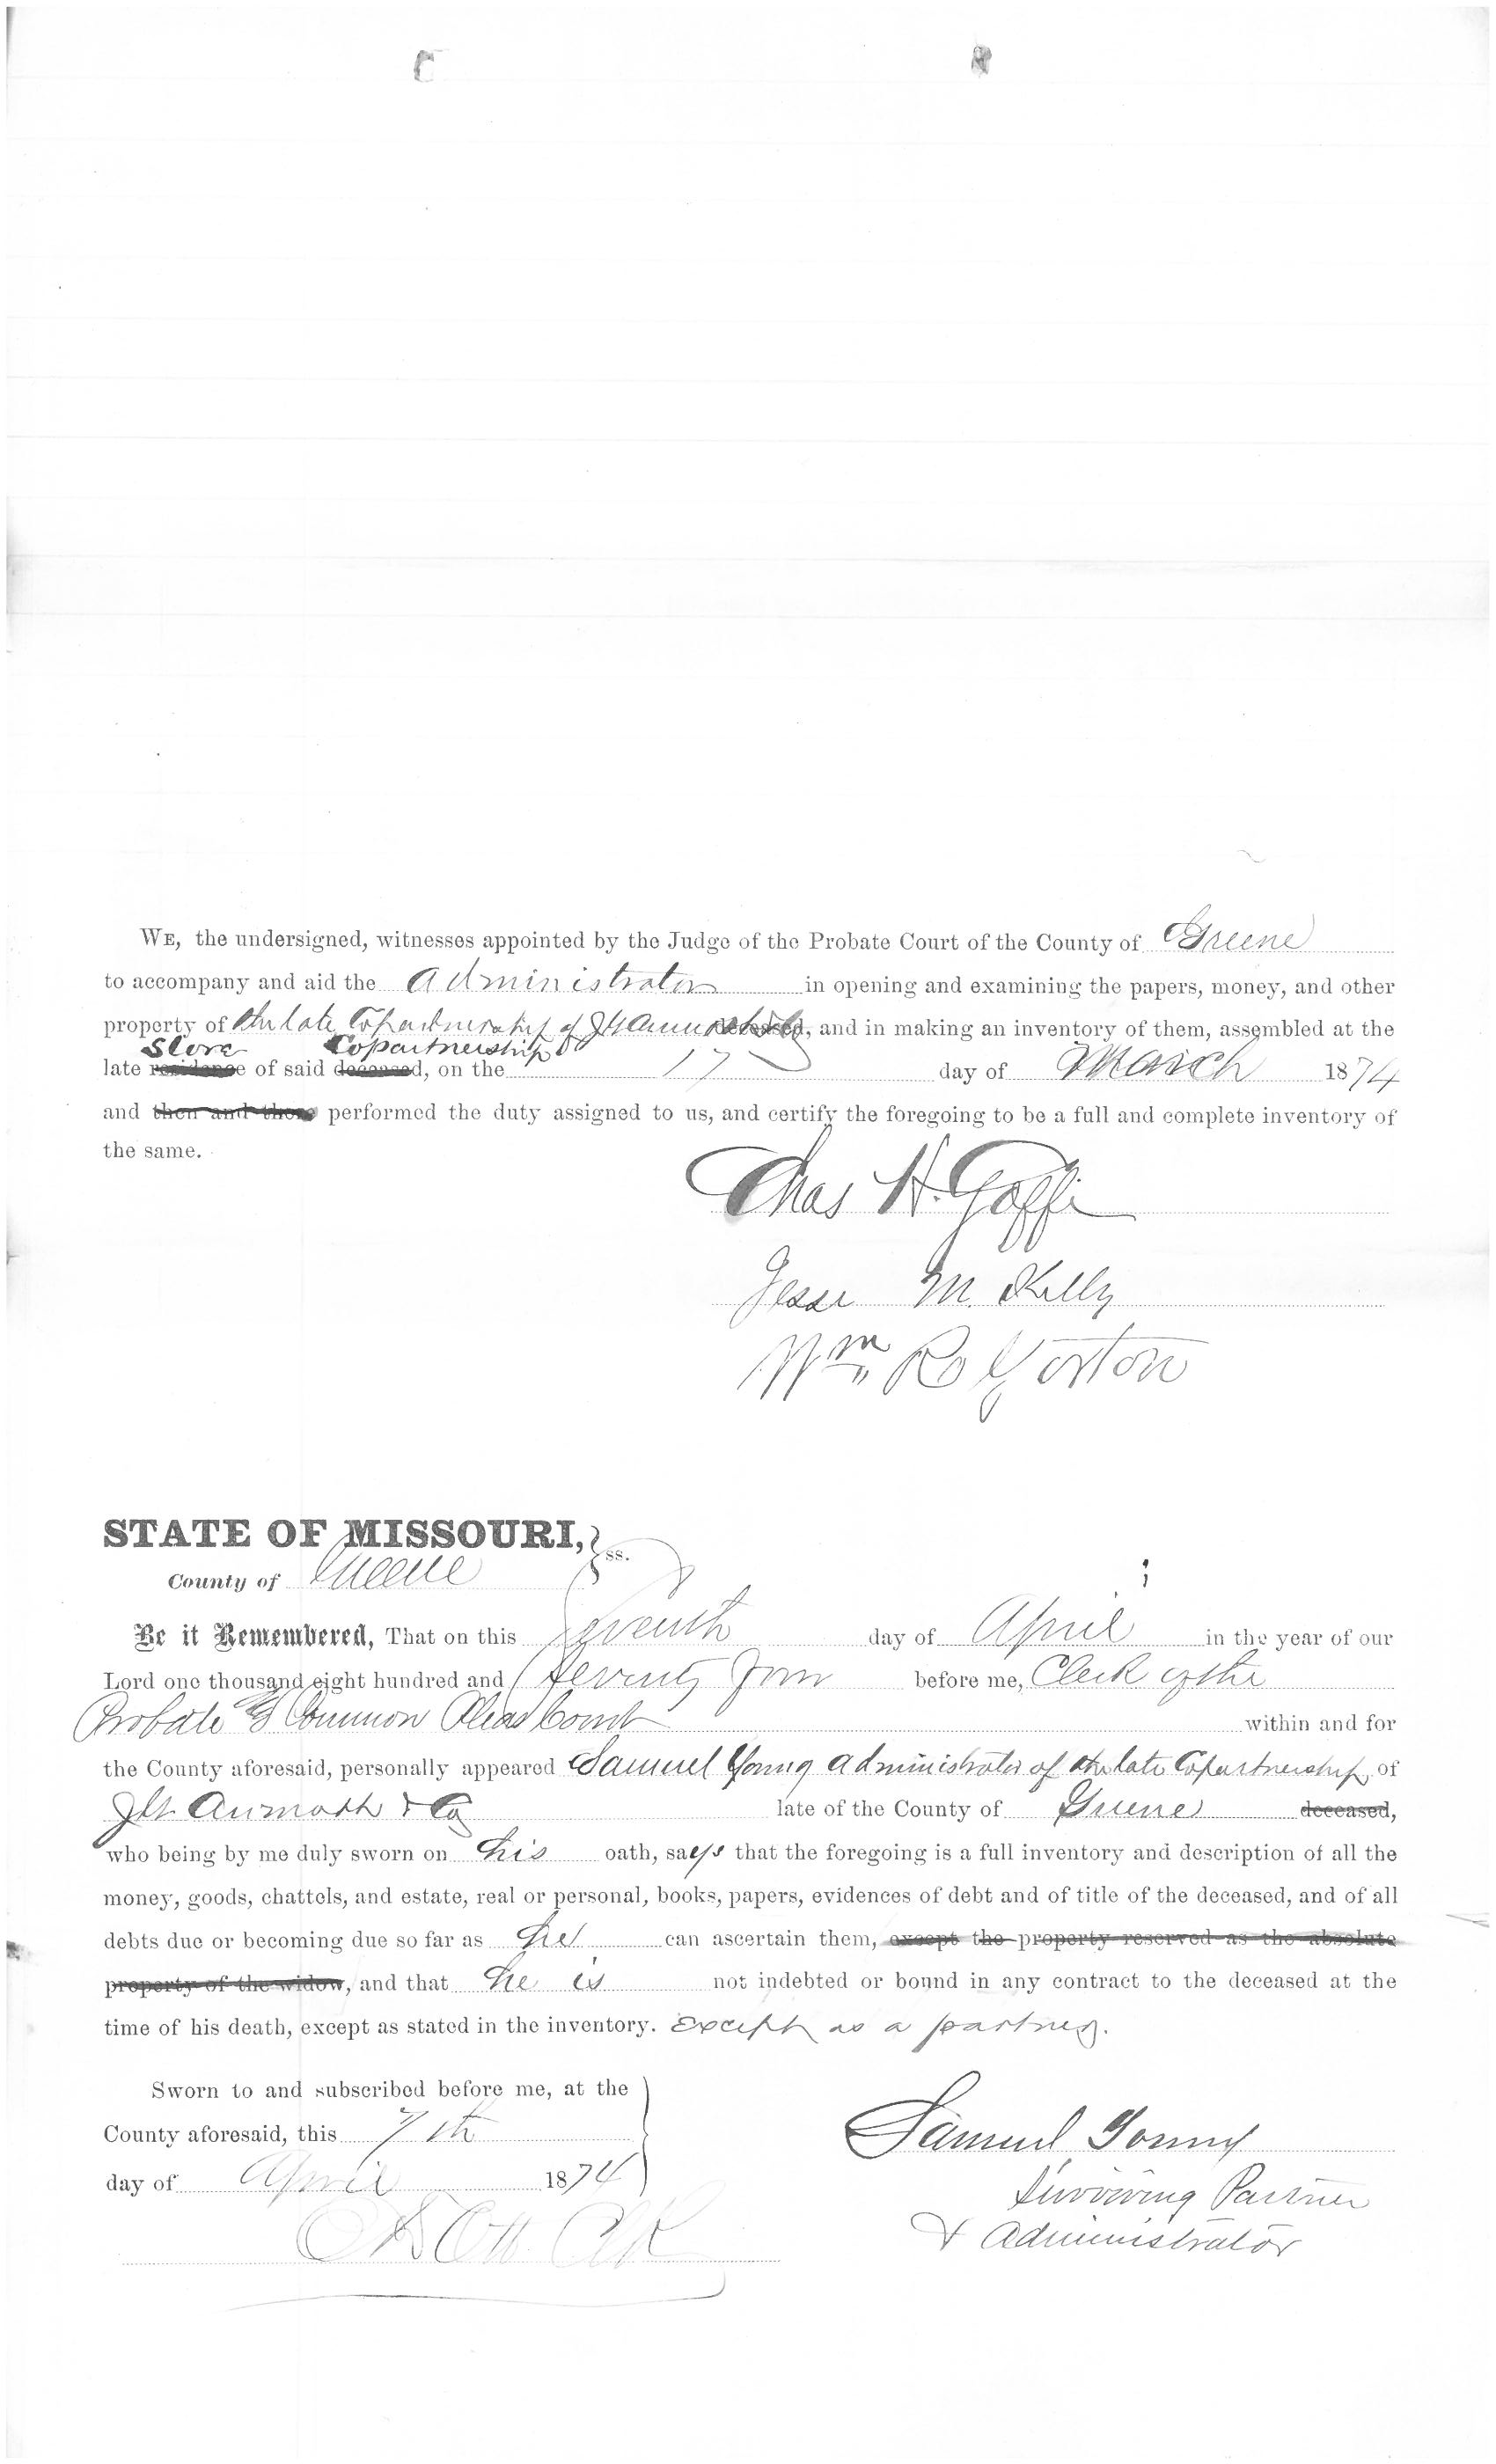 WE, the undersigned, witnesses appointed by the Judge of the Probate Court of the County of Greene
to accompany and aid the Administrator in opening and examining the papers, money, and other
property of the late Copartnership of deceased, and in making an inventory of them, assembled at the
Store Copartnership
late residence of said deceased, on the 17 day of March 1874
and then and there performed the duty assigned to us, and certify the foregoing to be a full and complete inventory of
the same.
Chas H.
Jesse M. Kelly
Wm
STATE OF MISSOURI, } ss.
County of Greene
Be it Remembered, That on this Seventh day of April in the year of our
Lord one thousand eight hundred and Seventy Four before me, Clerk of the
Probate & Common Pleas Court within and for
the County aforesaid, personally appeared Samuel Young Administrator of the late Copartnership of
& Co late of the County of Greene deceased,
who being by me duly sworn on his oath, says that the foregoing is a full inventory and description of all the
money, goods, chattels, and estate, real or personal, books, papers, evidences of debt and of title of the deceased, and of all
debts due or becoming due so far as he can ascertain them, except the property reserved as the absolute
property of the widow, and that he is not indebted or bound in any contract to the deceased at the
time of his death, except as stated in the inventory. Except as a partner.
Sworn to and subscribed before me, at the
County aforesaid, this 7th
day of April 1874
Samuel Young
Surviving Partner
& Administrator